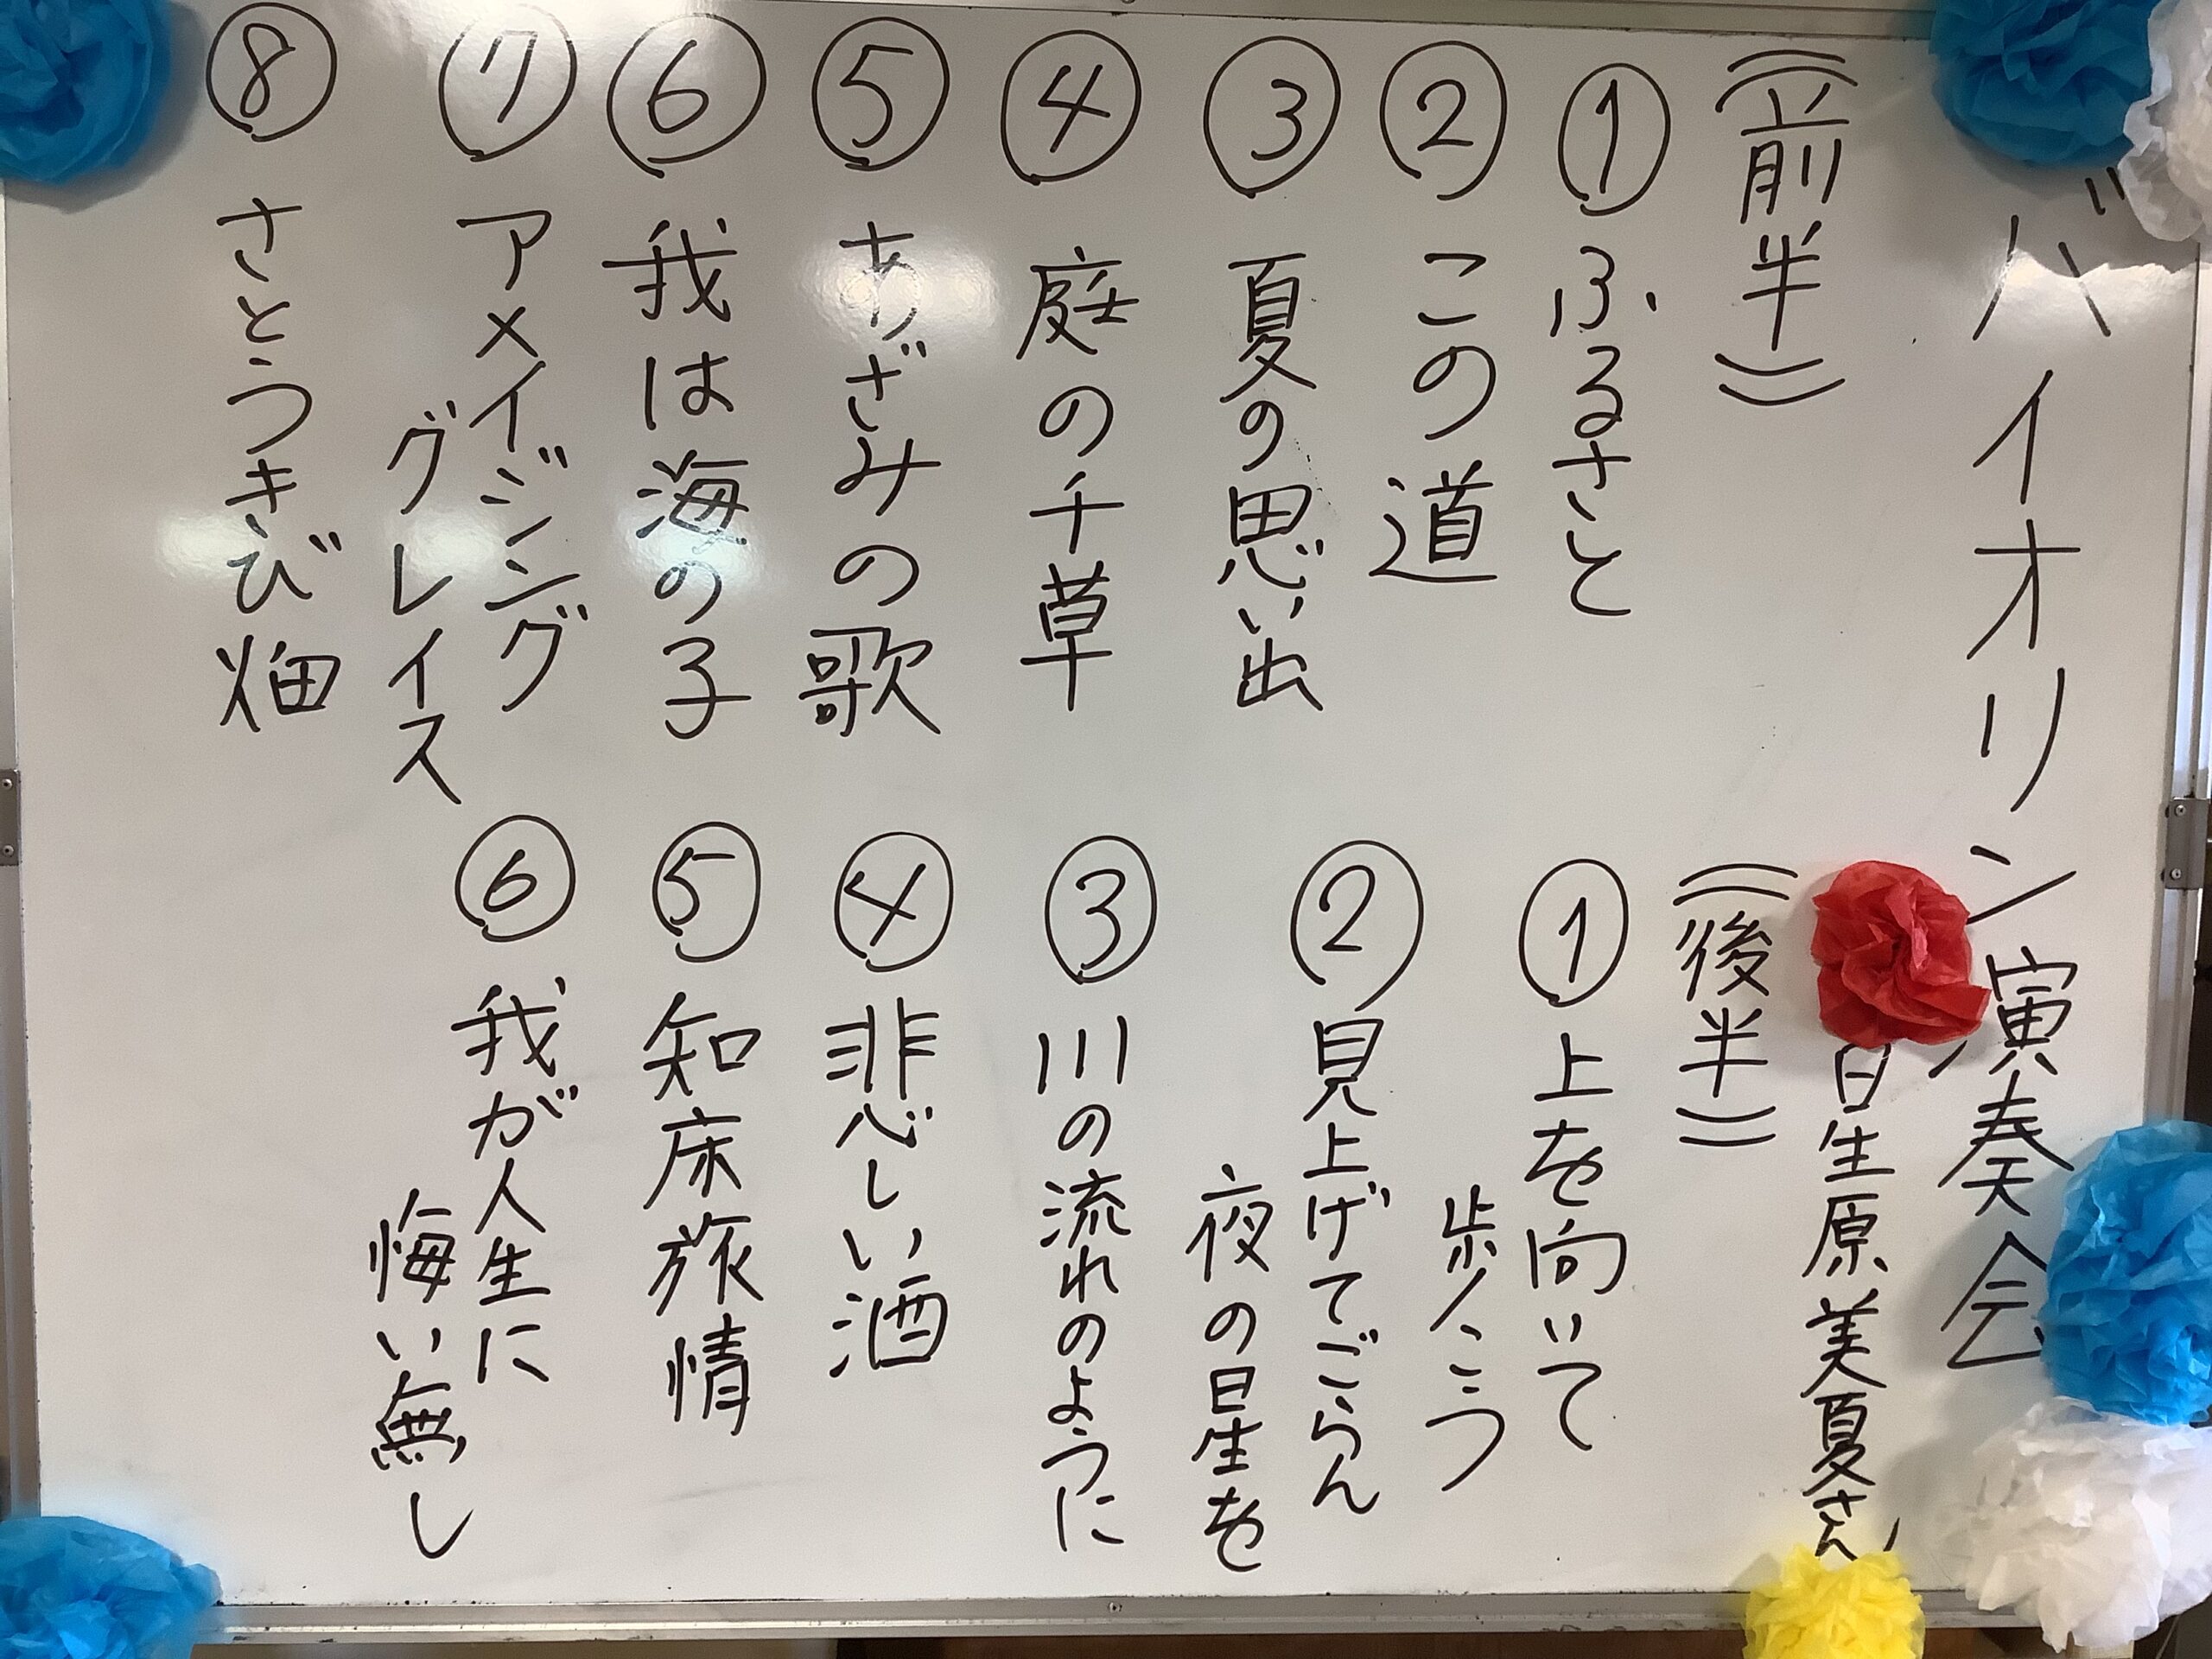 バイオリン演奏会
星原美夏さん
((前半))
① ふるさと
② この道
③ 夏の思い出
④ 庭の千草
⑤ あざみの歌
⑥ 我は海の子
⑦ アメイジング
グレイス
⑧ さとうきび畑
((後半))
① 上を向いて
歩こう
② 見上げてごらん
夜の星を
③ 川の流れのように
④ 悲しい酒
⑤ 知床旅情
⑥ 我が人生に
悔い無し